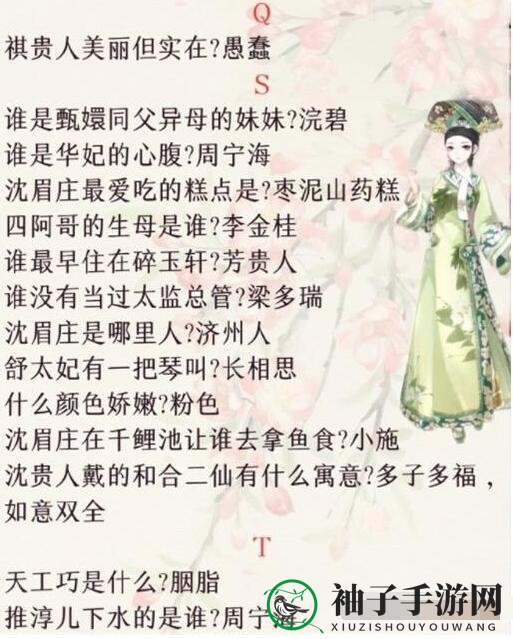 Q
祺贵人美丽但实在?愚蠢
S
谁是甄嬛同父异母的妹妹?浣碧
谁是华妃的心腹?周宁海
沈眉庄最爱吃的糕点是?枣泥山药糕
四阿哥的生母是谁?李金桂
谁最早住在碎玉轩?芳贵人
谁没有当过太监总管?梁多瑞
沈眉庄是哪里人?济州人
舒太妃有一把琴叫?长相思
什么颜色娇嫩?粉色
沈眉庄在千鲤池让谁去拿鱼食?小施
沈贵人戴的和合二仙有什么寓意?多子多福，
如意双全
T
天工巧是什么?胭脂
推淳儿下水的是谁?周宁海
袖子手游网
XIUZISHOUYOUWANG